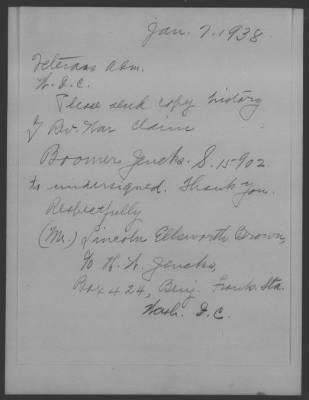 Jan. 7. 1938.
Veterans Adm.
W. D. C.
Please send copy history
of Rev. War Claim
Boomer Jencks. S. 15902
to undersigned. Thank you.
Respectfully
(Mr.) Lincoln Ellsworth Brown,
c/o H. W. Jencks,
Box 424, Benj. Frank. Sta.
Wash. D. C.